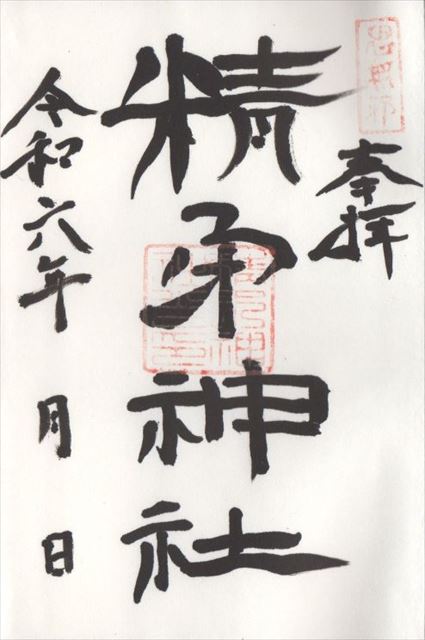 奉拝
精矛神社
令和六年 月 日